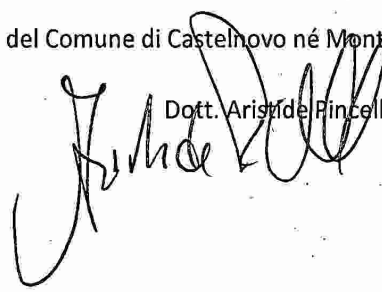 del Comune di Castelnovo né Mont
Dott. Aristide Pincell